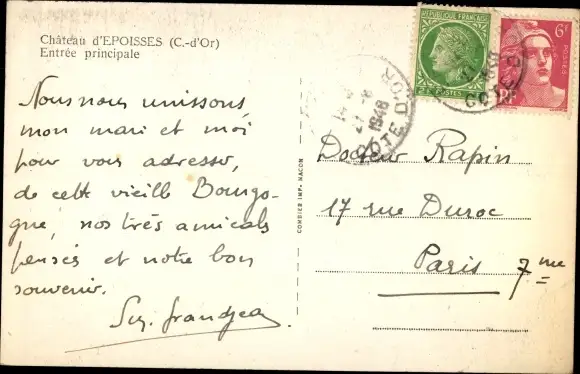 Château d'EPOISSES (C.-d'Or)
Entrée principale
Nous nous unissons
mon mari et moi
pour vous adresser,
de cette vieille Bourgo-
gne, nos très amicals
pensés et notre bon
souvenir.
COMBIER IMP. MACON
RÉPUBLIQUE FRANÇAISE
POSTES
6F
POSTES
1948
COTE D'OR
Docteur Rapin
17 rue Duroc
Paris 7me